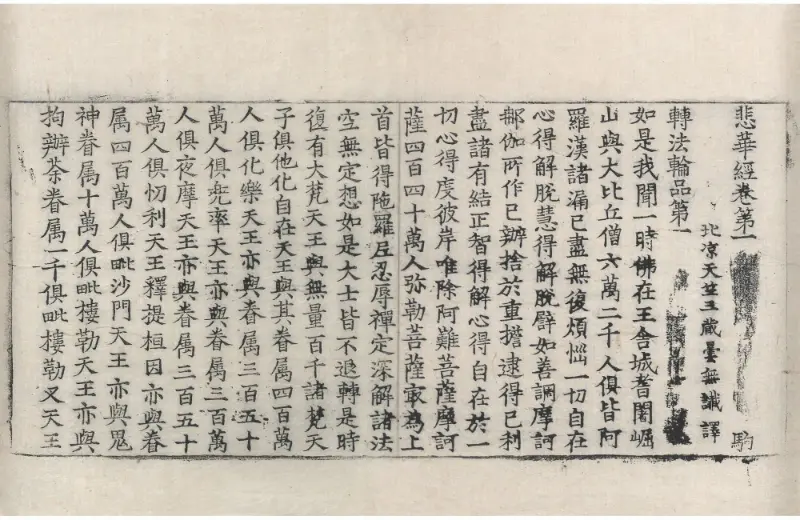 悲華經卷第一 駒
北涼天竺三藏曇無讖譯
轉法輪品第一
如是我聞一時佛在王舍城耆闍崛
山與大比丘僧六萬二千人俱皆阿
羅漢諸漏已盡無復煩惱一切自在
心得解脫慧得解脫譬如善調摩訶
那伽所作已辦捨於重擔逮得已利
盡諸有結正智得解心得自在於一
切心得度彼岸唯除阿難菩薩摩訶
薩四百四十萬人弥勒菩薩㝡為上
首皆得陁羅尼忍辱禪定深解諸法
空無定想如是大士皆不退轉是時
復有大梵天王與無量百千諸梵天
子俱他化自在天王與其眷属四百萬
人俱化樂天王亦與眷属三百五十
萬人俱兜率天王亦與眷属三百萬
人俱夜摩天王亦與眷属三百五十
萬人俱忉利天王釋提桓因亦與眷
属四百萬人俱毗沙門天王亦與鬼
神眷属十萬人俱毗樓勒天王亦與
拘辦荼眷属一千俱毗樓勒叉天王